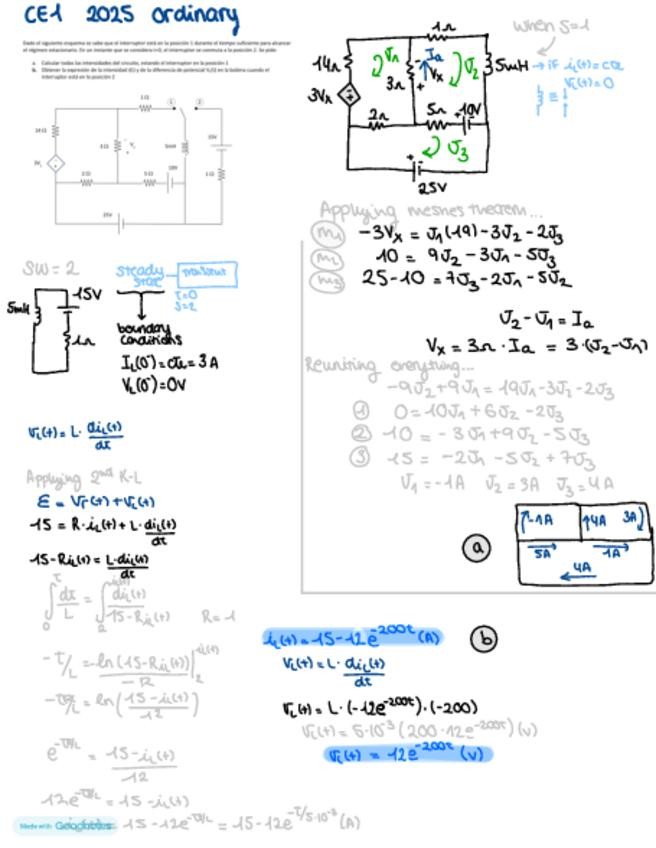 CE1 2025 ordinary
Dado el siguiente esquema se sabe que el interruptor está en la posición 1 durante el tiempo suficiente para alcanzar
el régimen estacionario. En un instante que se considera t=0, el interruptor se conmuta a la posición 2. Se pide:
a. Calcular todas las intensidades del circuito, estando el interruptor en la posición 1
b. Obtener la expresión de la intensidad i(t) y de la diferencia de potencial VL(t) en la bobina cuando el
interruptor está en la posición 2
when S=1
→ if iL(t)=cte
VL(t)=0
1Ω
14Ω
3Vx
J1
3Ω
Ia
Vx
J2
5mH
2Ω
5Ω
10V
J3
25V
Applying meshes theorem...
m1 -3Vx = J1(19)-3J2-2J3
m2 10 = 9J2-3J1-5J3
m3 25-10 = 7J3-2J1-5J2
J2-J1=Ia
Vx = 3Ω·Ia = 3·(J2-J1)
Rewriting everything...
-9J2+9J1=19J1-3J2-2J3
① 0=10J1+6J2-2J3
② 10=-3J1+9J2-5J3
③ 15=-2J1-5J2+7J3
J1=-1A J2=3A J3=4A
a
-1A 4A 3A
5A 1A
4A
SW=2
steady state
transient
t=0
S=2
5mH
15V
1Ω
boundary conditions
IL(0⁻)=cte=3A
VL(0⁻)=0V
VL(t)=L·diL(t)/dt
Applying 2nd K-L
ε=Vr(t)+VL(t)
15=R·iL(t)+L·diL(t)/dt
15-RiL(t)=L·diL(t)/dt
R=1
12e^-t/L=15-iL(t)
15-12e^-t/L=15-12e^-t/5·10⁻³ (A)
iL(t)=15-12e^-200t (A)
b
VL(t)=L·diL(t)/dt
VL(t)=L·(-12e^-200t)·(-200)
VL(t)=5·10⁻³(200·12e^-200t)(V)
VL(t)=12e^-200t (V)
Made with Goodnotes